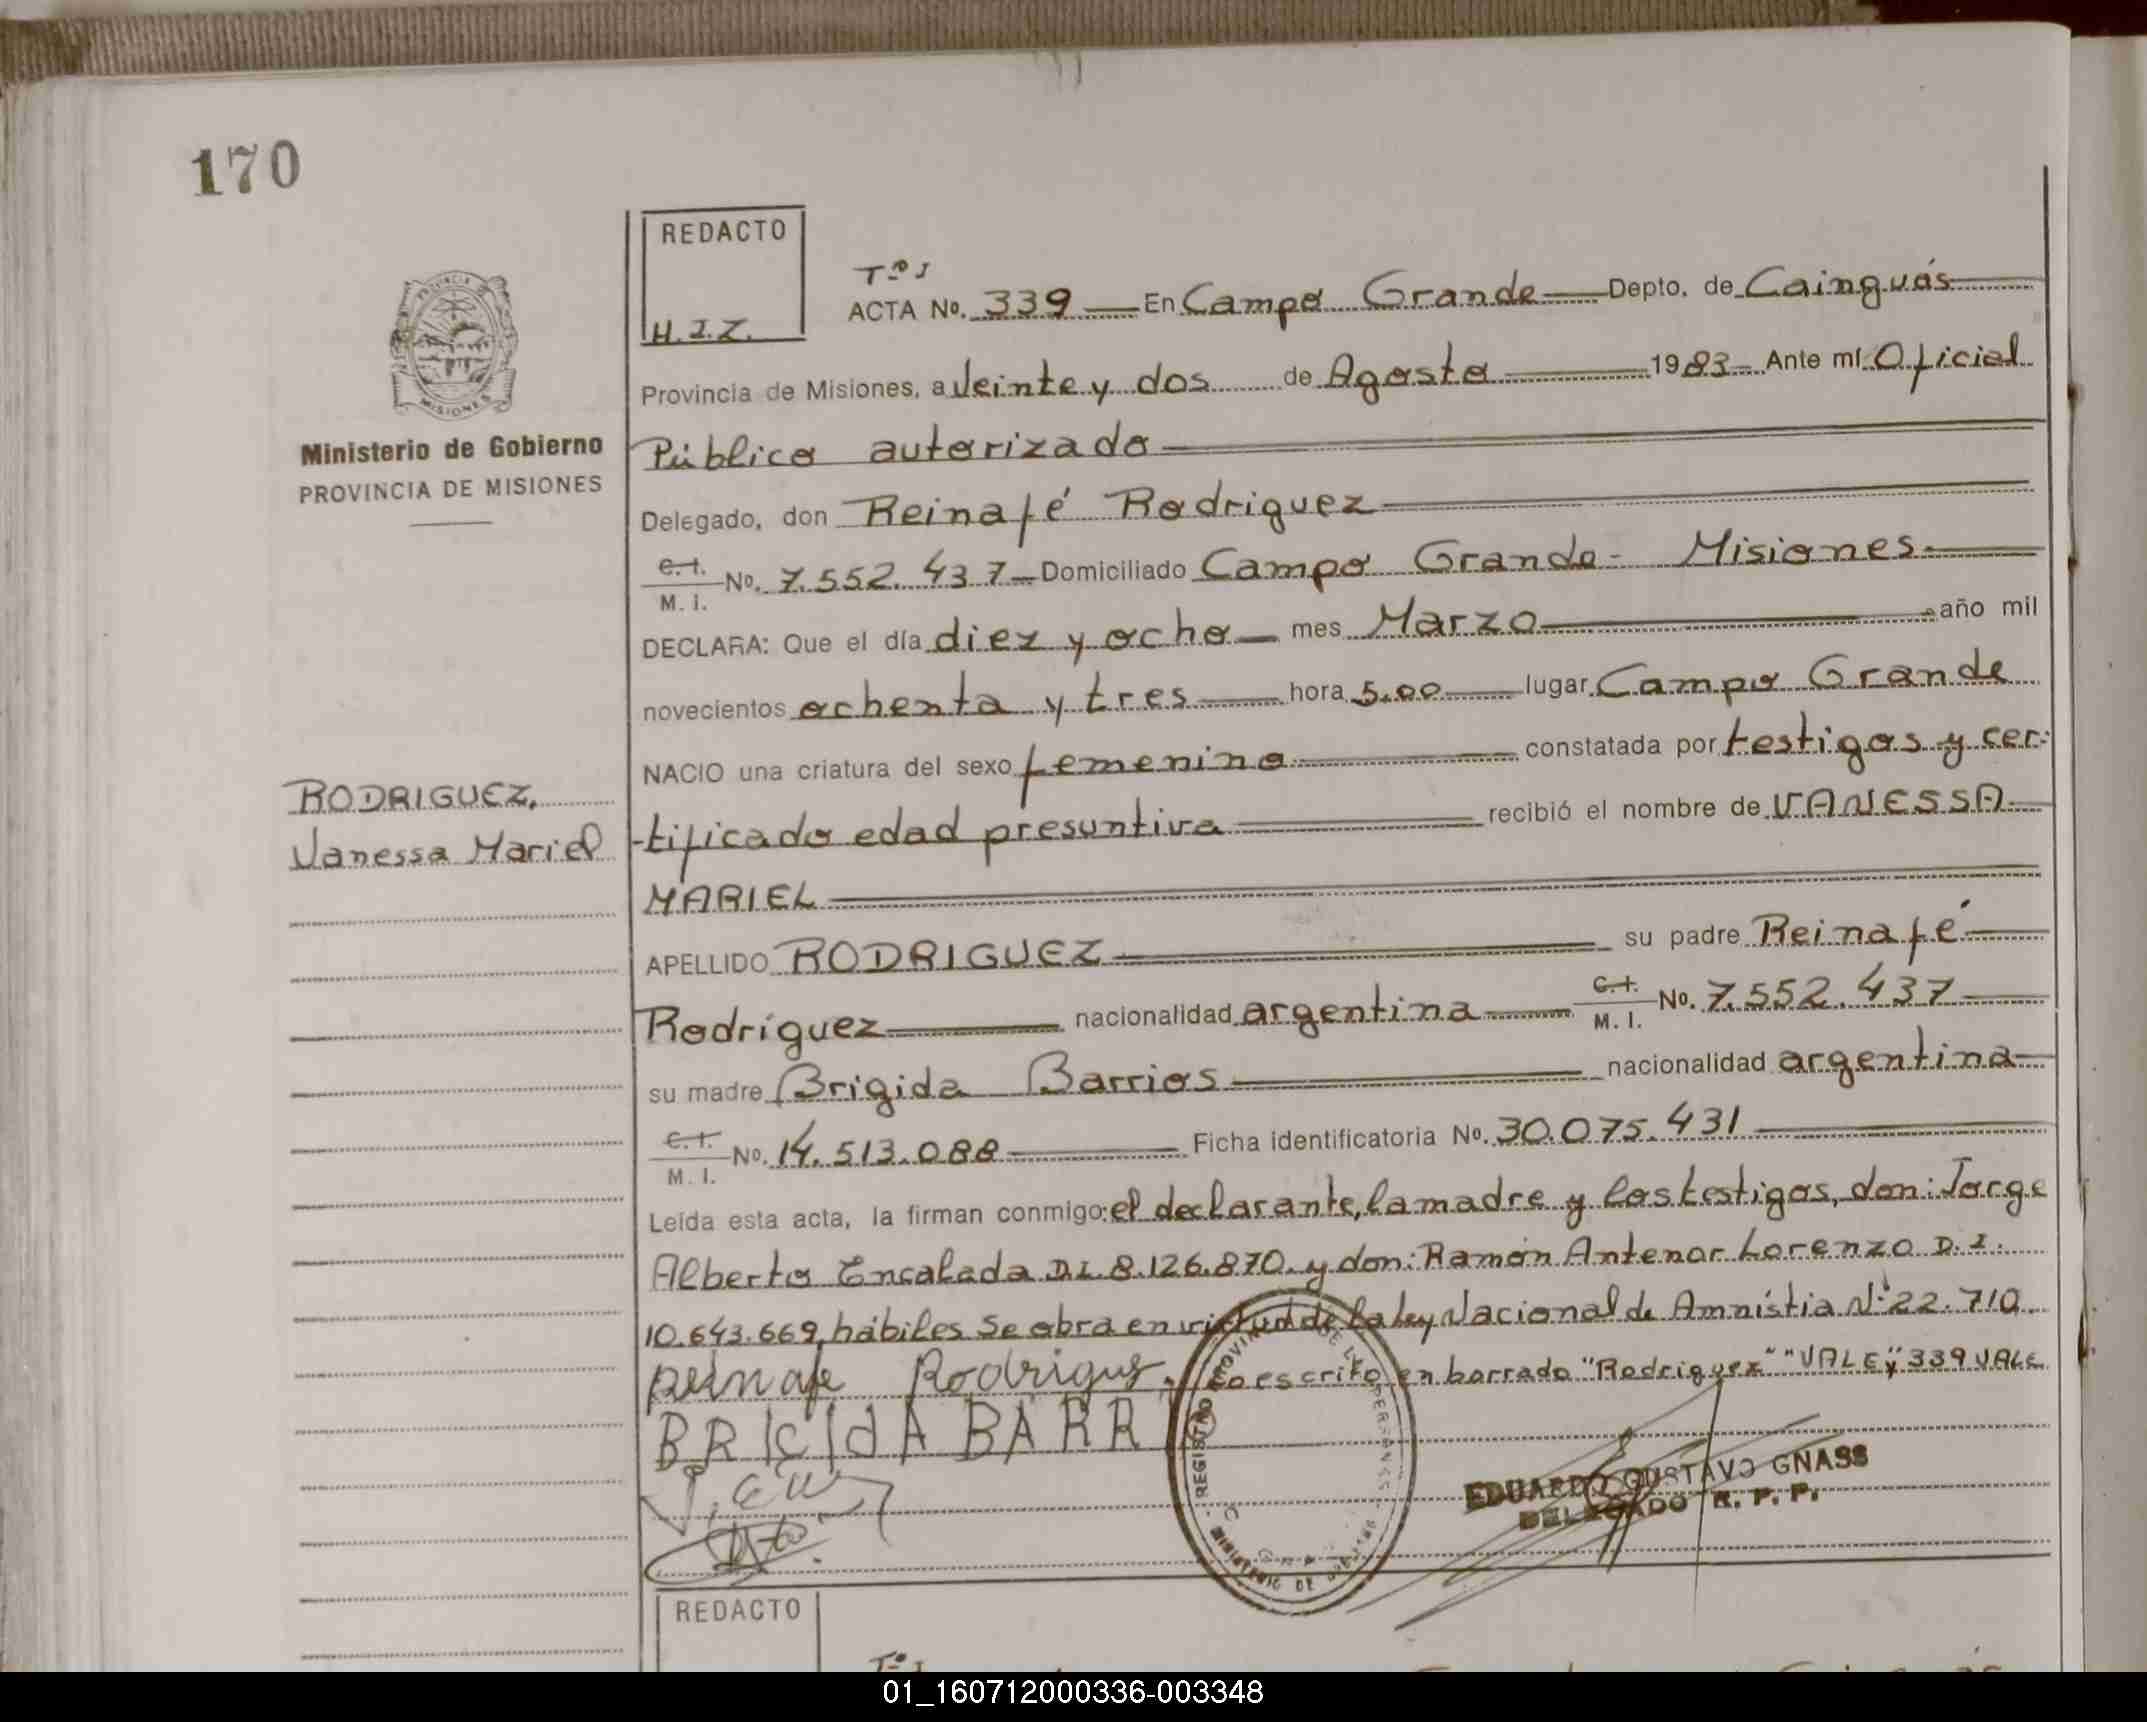 170
REDACTO
H.I.Z.
Tº I
ACTA No. 339 En Campo Grande Depto. de Cainguás
Provincia de Misiones, a Veinte y dos de Agosto 1983 Ante mí Oficial
Público autorizado
Delegado, don Reinafé Rodriguez
C.I.
M. I. No. 7.552.437 Domiciliado Campo Grande - Misiones
DECLARA: Que el día diez y ocho mes Marzo año mil
novecientos ochenta y tres hora 5.00 lugar Campo Grande
NACIO una criatura del sexo femenino constatada por testigos y cer-
-tificado edad presuntiva recibió el nombre de VANESSA
MARIEL
APELLIDO RODRIGUEZ su padre Reinafé
Rodríguez nacionalidad argentina C.I. M. I. No. 7.552.437
su madre Brigida Barrios nacionalidad argentina
C.I.
M. I. No. 14.513.088 Ficha identificatoria No. 30.075.431
Leída esta acta, la firman conmigo: el declarante, la madre y los testigos, don: Jorge
Alberto Encalada D.I. 8.126.870. y don: Ramón Antenor Lorenzo D.I.
10.643.669, hábiles Se obra en virtud de la ley Nacional de Amnistia Nº 22.710
reinafe Rodrigus. Lo escrito en borrado "Rodriguez" "VALE" y 339 VALE
BRIGIdA BARR
EDUARDO GUSTAVO GNASS
DELEGADO R. P. P.
Ministerio de Gobierno
PROVINCIA DE MISIONES
RODRIGUEZ,
Vanessa Mariel
REDACTO
Tº I
01_160712000336-003348